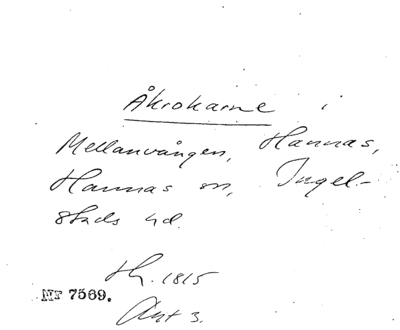 Åkrokarne i
Mellanvången, Hannas,
Hannas sn, Ingel-
stads hd.
1815
Nr 7569.
Akt 3.